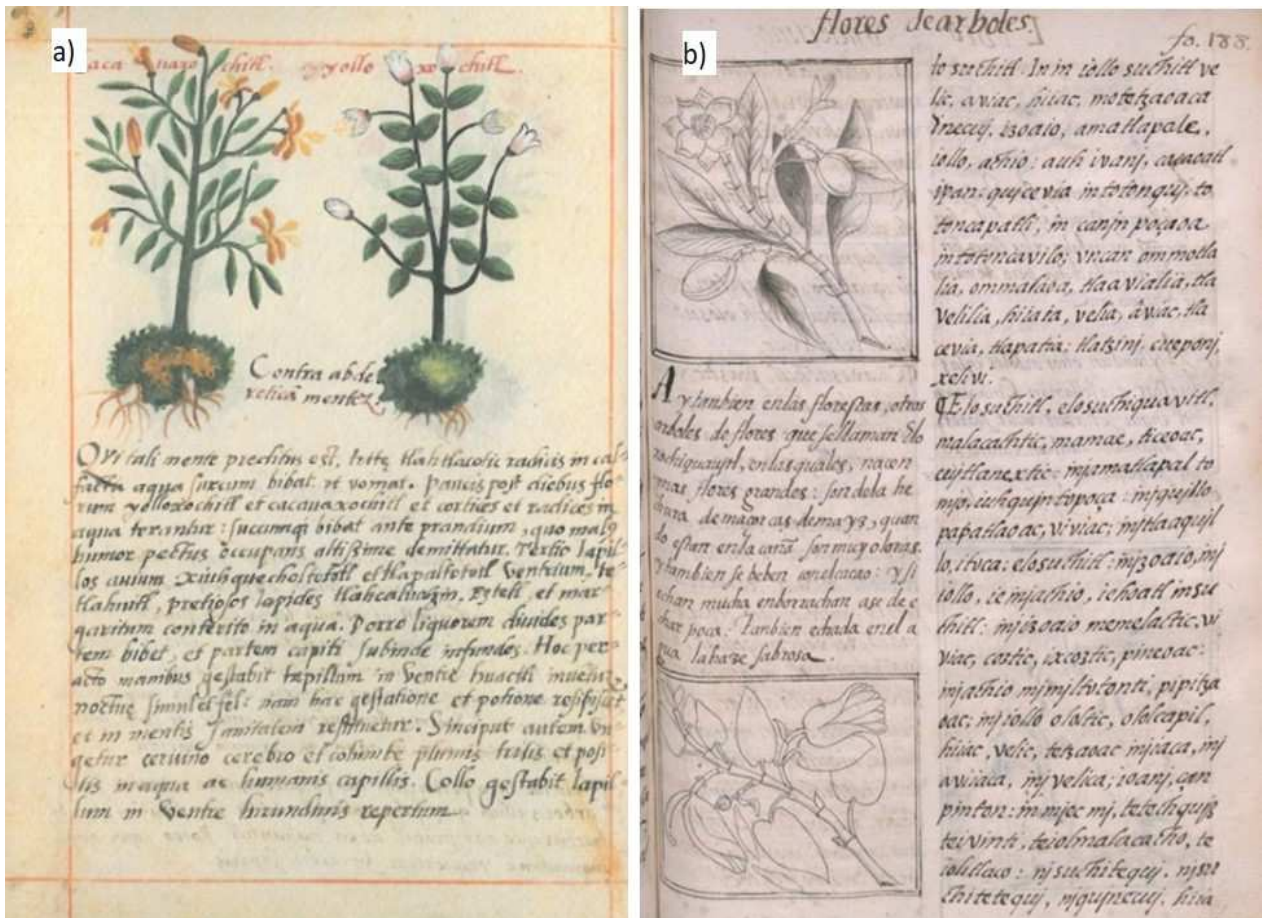 a)
xochitl.
Contra abde
mentez
Qvi tali mente preditus est, tlahtlacotic radicis in cal
aqua succum bibat, vt vomat. Paucis post diebus flo
rum yolloxochitl et cacauaxochitl et cortices et radices in
aqua terantur: succumq; bibat ante prandium, quo malus
humor pectus occupans altissime demittatur. Tertio lapil
los auium xiuhquecholtototl et tlapaltototl ventrium, te
tlahuitl, pretiosos lapides tlahcalhuatzin, Eztetl, et mar
garitum conterito in aqua. Porro liquorum diuides par
tem bibet, et partem capiti subinde infundes. Hoc per
acto manibus gestabit lapillum in ventre huactli
noctuę simul et fel: nam hac gestatione et potione
et in mentis sanitatem restituetur. Sinciput autem vn
getur ceruino cerebro et columbę plumis tritis et posi
tis in aqua ac humanis capillis. Collo gestabit lapil
lum in ventre hirundinis repertum
flores de arboles.
b)
A y tambien en las florestas, otros
arboles de flores que se llaman Elo
en las quales, nacen
vnas flores grandes: son de la he
chura de maçorcas de mayz, quan
do estan en la caña son muy olorosas
y tambien se beben con el cacao: y si
echan mucha enborrachan ase de e
char poca. Tanbien echada en el a
gua la haze sabrosa.
fo. 188.
to suchitl: In in iollo suchitl ve
lic, aviac, hiiac, motetzaoaca
ynecuj, izoaio, amatlapale,
iollo, achio: auh ivanj, cacaoatl
ipan: quicevia in totonquj, to
toncapatli, in canjn poçaoa
in totoncavilo; vncan ommotla
lia, ommalaoa, tlaavialia, tla
velilia, hiiaia, velia, aviac, tla
cevia, tlapatia: tlatzinj, cueponj,
xelivi.
Elosuchitl, elosuchiquavitl,
malacachtic, mamae, ticeoac,
cujtlanextic: injamatlapal to
mjo, iuhquin topoca: injquillo
papatlaoac, viviac: injtlaaquil
lo, itoca: elosuchitl: injzoaio, inj
iollo, ie injachio, iehoatl in su
chitl: injizoaio memelactic, vi
viac, coztic, ixcoztic, pineoac:
injachio mjmjltotonti, pipitza
oac: inj iollo ololtic, ololcapil,
hiiac, velic, tetzaoac injiaca, inj
aviiaca, inj velica; ioanj, çan
pinton: in mjec mj, tetech qujz
teivinti, teiolmalacacho, te
iolillaco: njsuchitequj, njsu
chitetequj, njqujnecuj, hiia